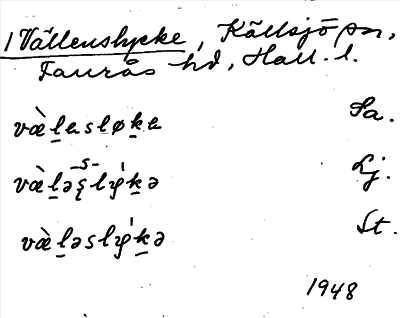 1 Vällenslycke, Källsjö sn,
Faurås hd, Hall. l.
væ̀l̲ɐsløk̲ɐ Sa.
væ̀l̲əslyk̲ə Lj.
væ̀l̲əslyk̲ə St.
1948